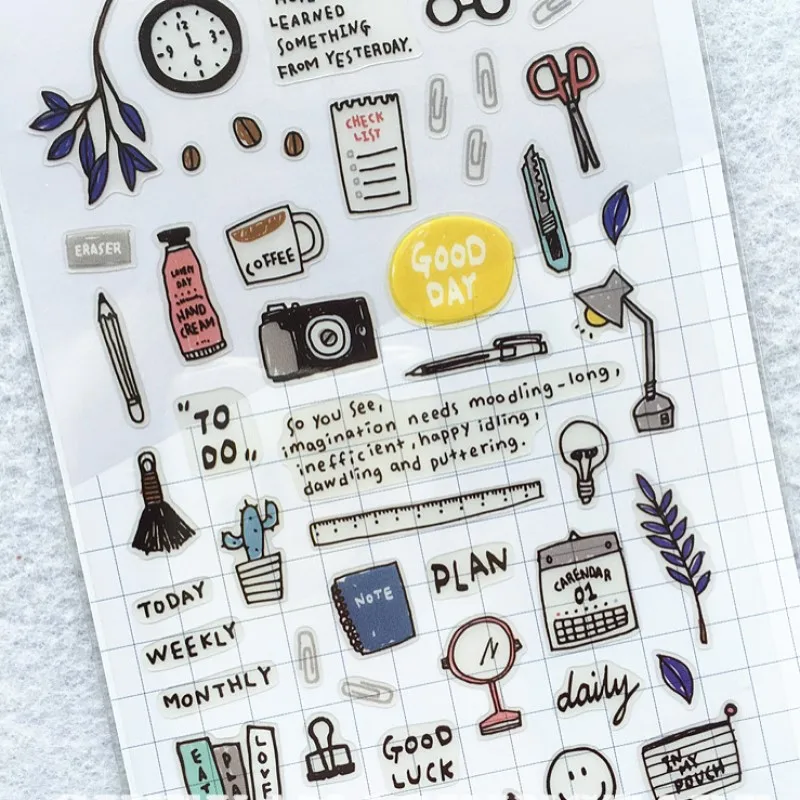 LEARNED
SOMETHING
FROM YESTERDAY.
12
3
6
9
CHECK
LIST
ERASER
LOVELY
DAY
HAND
CREAM
COFFEE
GOOD
DAY
"TO
DO"
So you see,
imagination needs moodling-long,
inefficient, happy idling,
dawdling and puttering.
B
NOTE
PLAN
CARENDAR
01
TODAY
WEEKLY
MONTHLY
daily
EAT
PLA
LOVE
GOOD
LUCK
IN
MY
POUCH